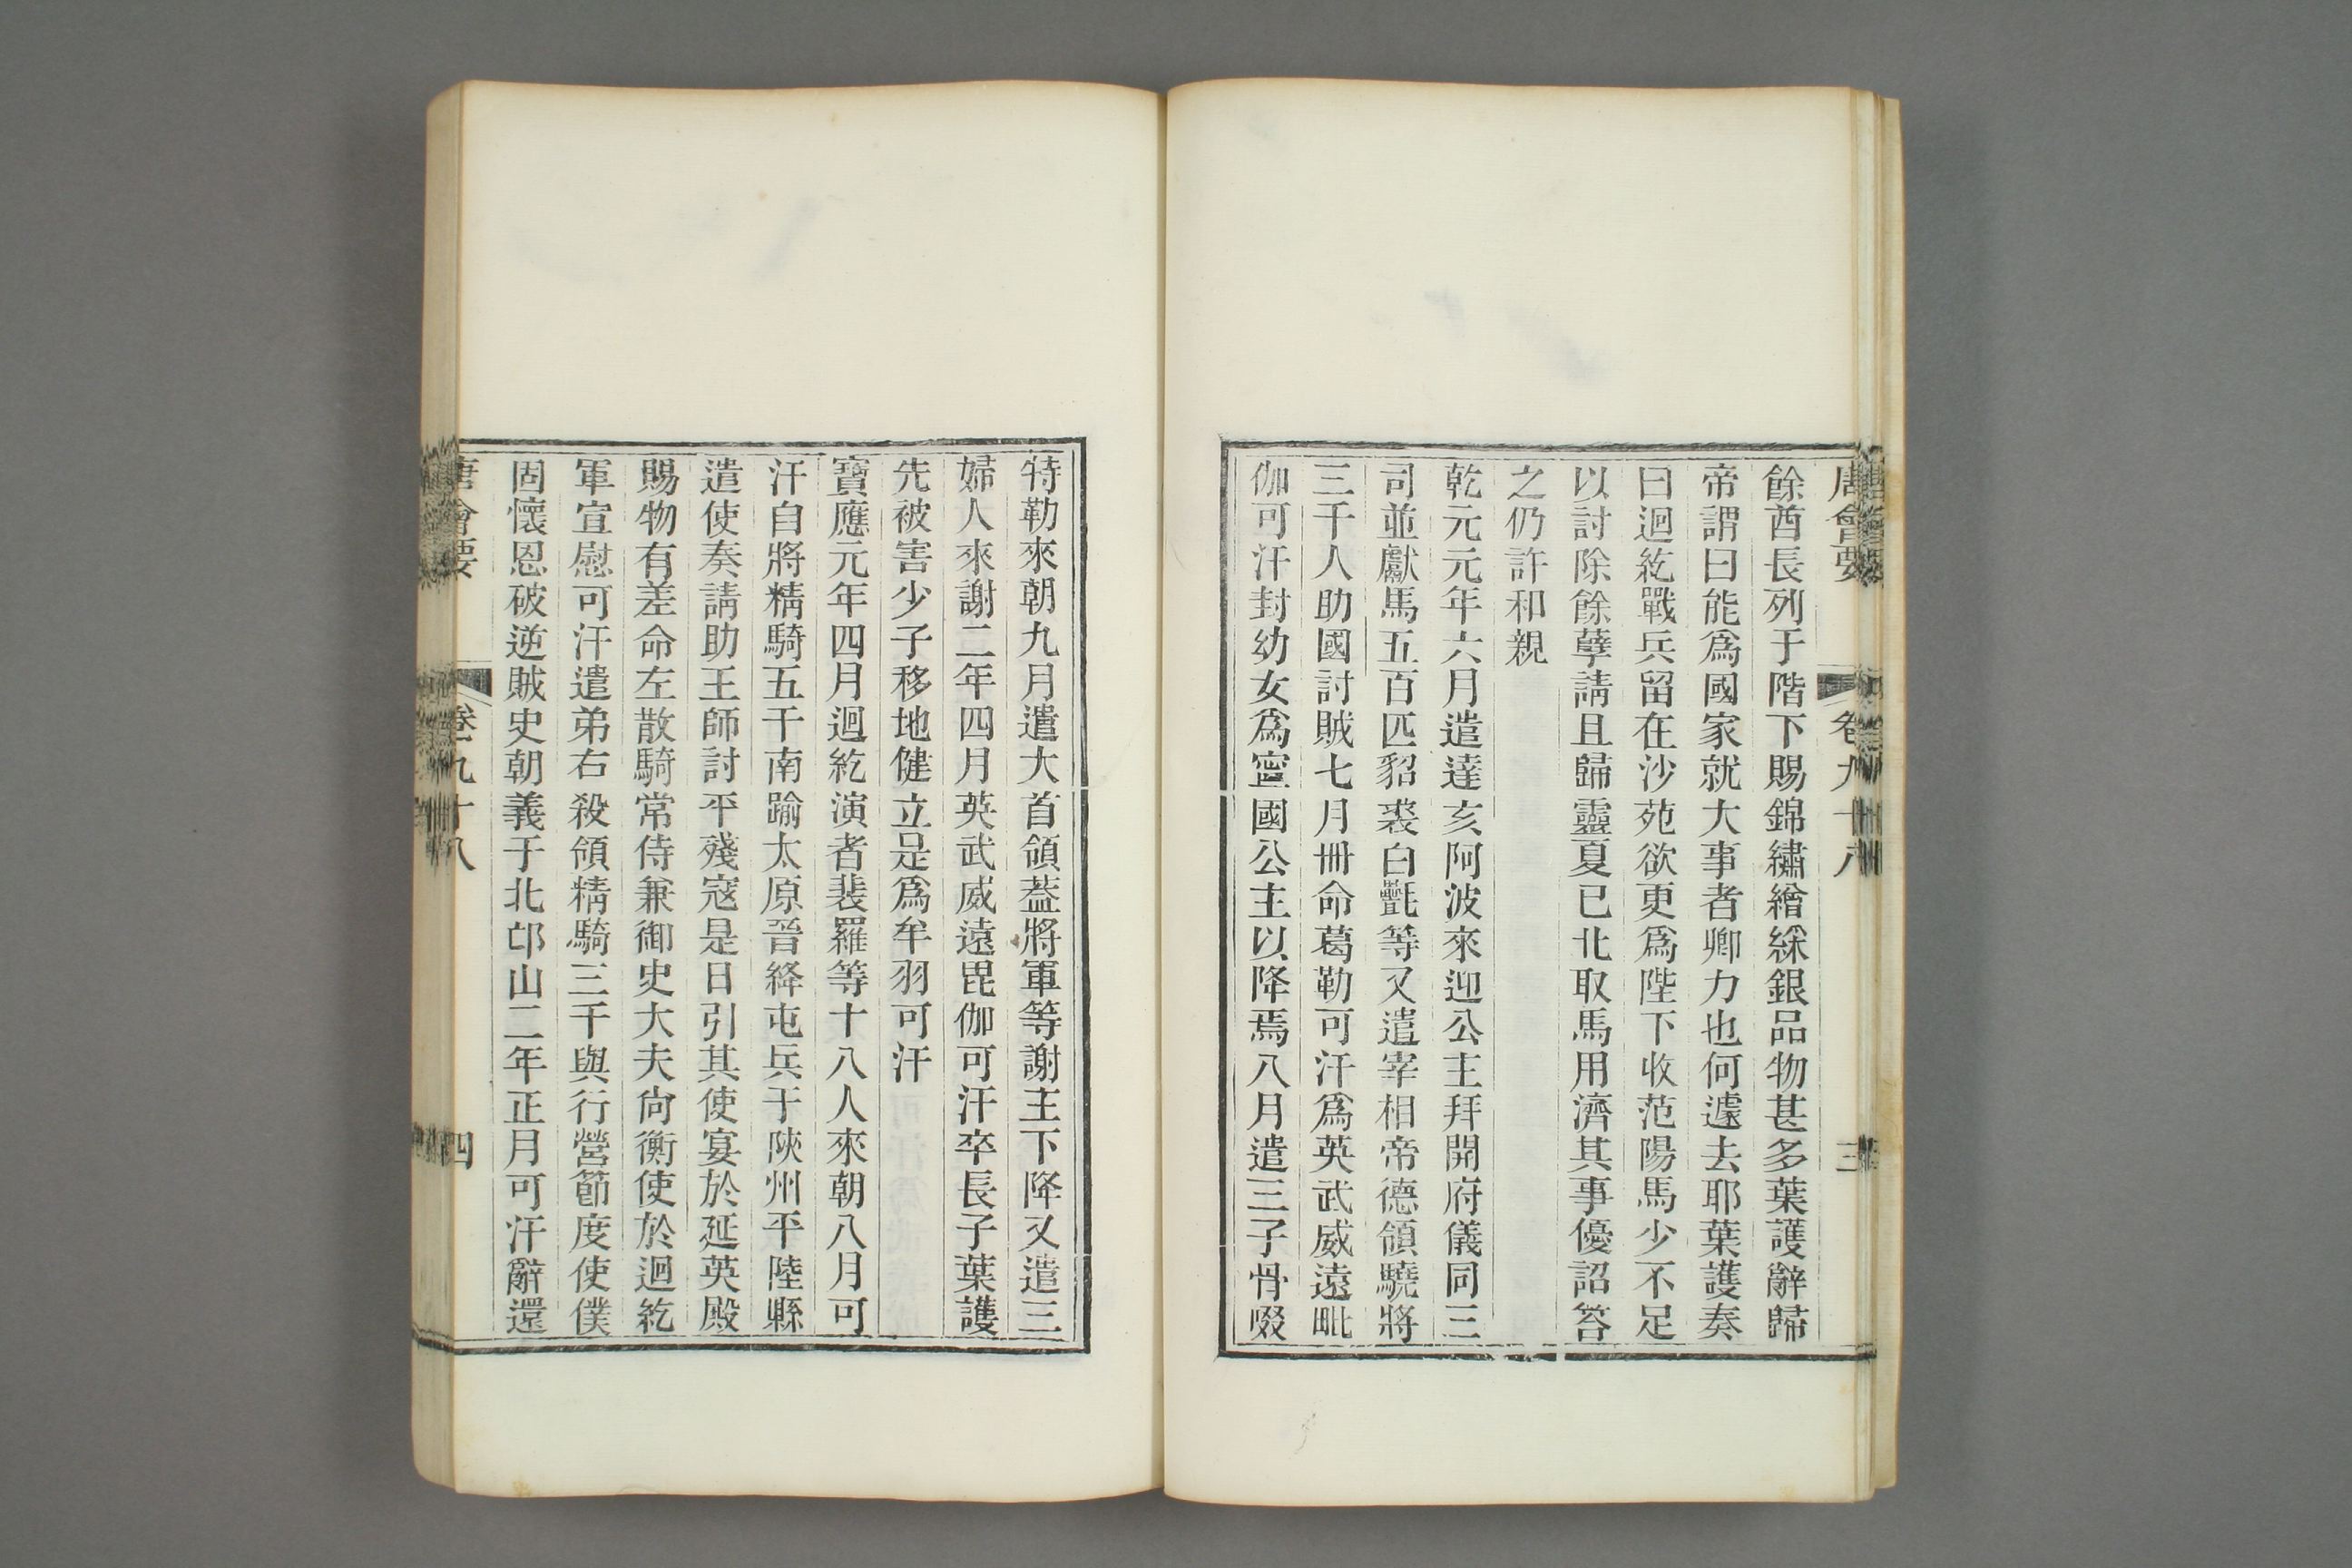 唐會要 卷九十八 三
餘酋長列于階下賜錦繡繒綵銀品物甚多葉護辭歸
帝謂曰能爲國家就大事者卿力也何遽去耶葉護奏
曰迴紇戰兵留在沙苑欲更爲陛下收范陽馬少不足
以討除餘孽請且歸靈夏已北取馬用濟其事優詔答
之仍許和親
乾元元年六月遣達亥阿波來迎公主拜開府儀同三
司並獻馬五百匹貂裘白㲲等又遣宰相帝德領驍將
三千人助國討賊七月冊命葛勒可汗爲英武威遠毗
伽可汗封幼女爲寧國公主以降焉八月遣三子骨啜
特勒來朝九月遣大首領葢將軍等謝主下降又遣三
婦人來謝二年四月英武威遠毘伽可汗卒長子葉護
先被害少子移地健立是爲牟羽可汗
寶應元年四月迴紇演者裴羅等十八人來朝八月可
汗自將精騎五千南踰太原晉絳屯兵于陜州平陸縣
遣使奏請助王師討平殘寇是日引其使宴於延英殿
賜物有差命左散騎常侍兼御史大夫尙衡使於迴紇
軍宣慰可汗遣弟右殺領精騎三千與行營節度使僕
固懷恩破逆賊史朝義于北邙山二年正月可汗辭還
唐會要 卷九十八 四